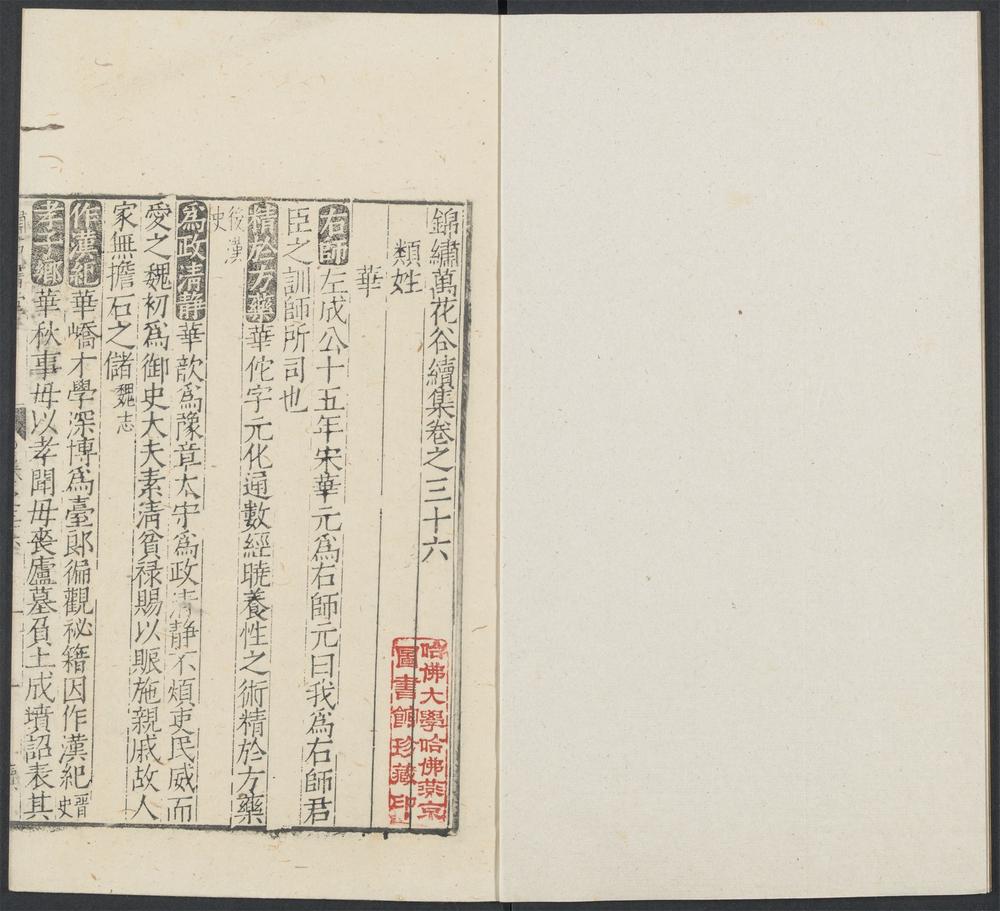 錦繡萬花谷續集卷之三十六
類姓
華
右師左成公十五年宋華元爲右師元曰我爲右師君
臣之訓師所司也
精於方藥華佗字元化通數經曉養性之術精於方藥
後漢史
爲政清静華歆爲豫章太守爲政清静不煩吏民咸而
愛之魏初爲御史大夫素清貧禄賜以賑施親戚故人
家無擔石之儲魏志
作漢紀華嶠才學深博爲臺郎徧觀祕籍因作漢紀晉史
孝子鄉華秋事母以孝聞母喪廬墓負土成墳詔表其
哈佛大學哈佛燕京
圖書館珍藏印